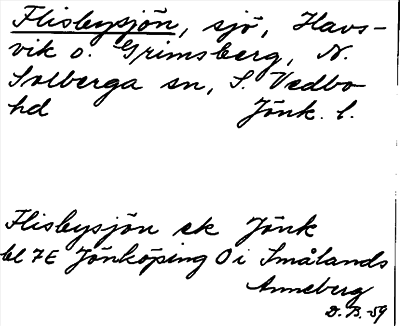 Flisbysjön, sjö, Havs-
vik o. Grimsberg, N.
Solberga sn, S. Vedbo
hd Jönk. l.
Flisbysjön ek Jönk
bl 7E Jönköping O i Smålands
Anneberg
D. B. -59